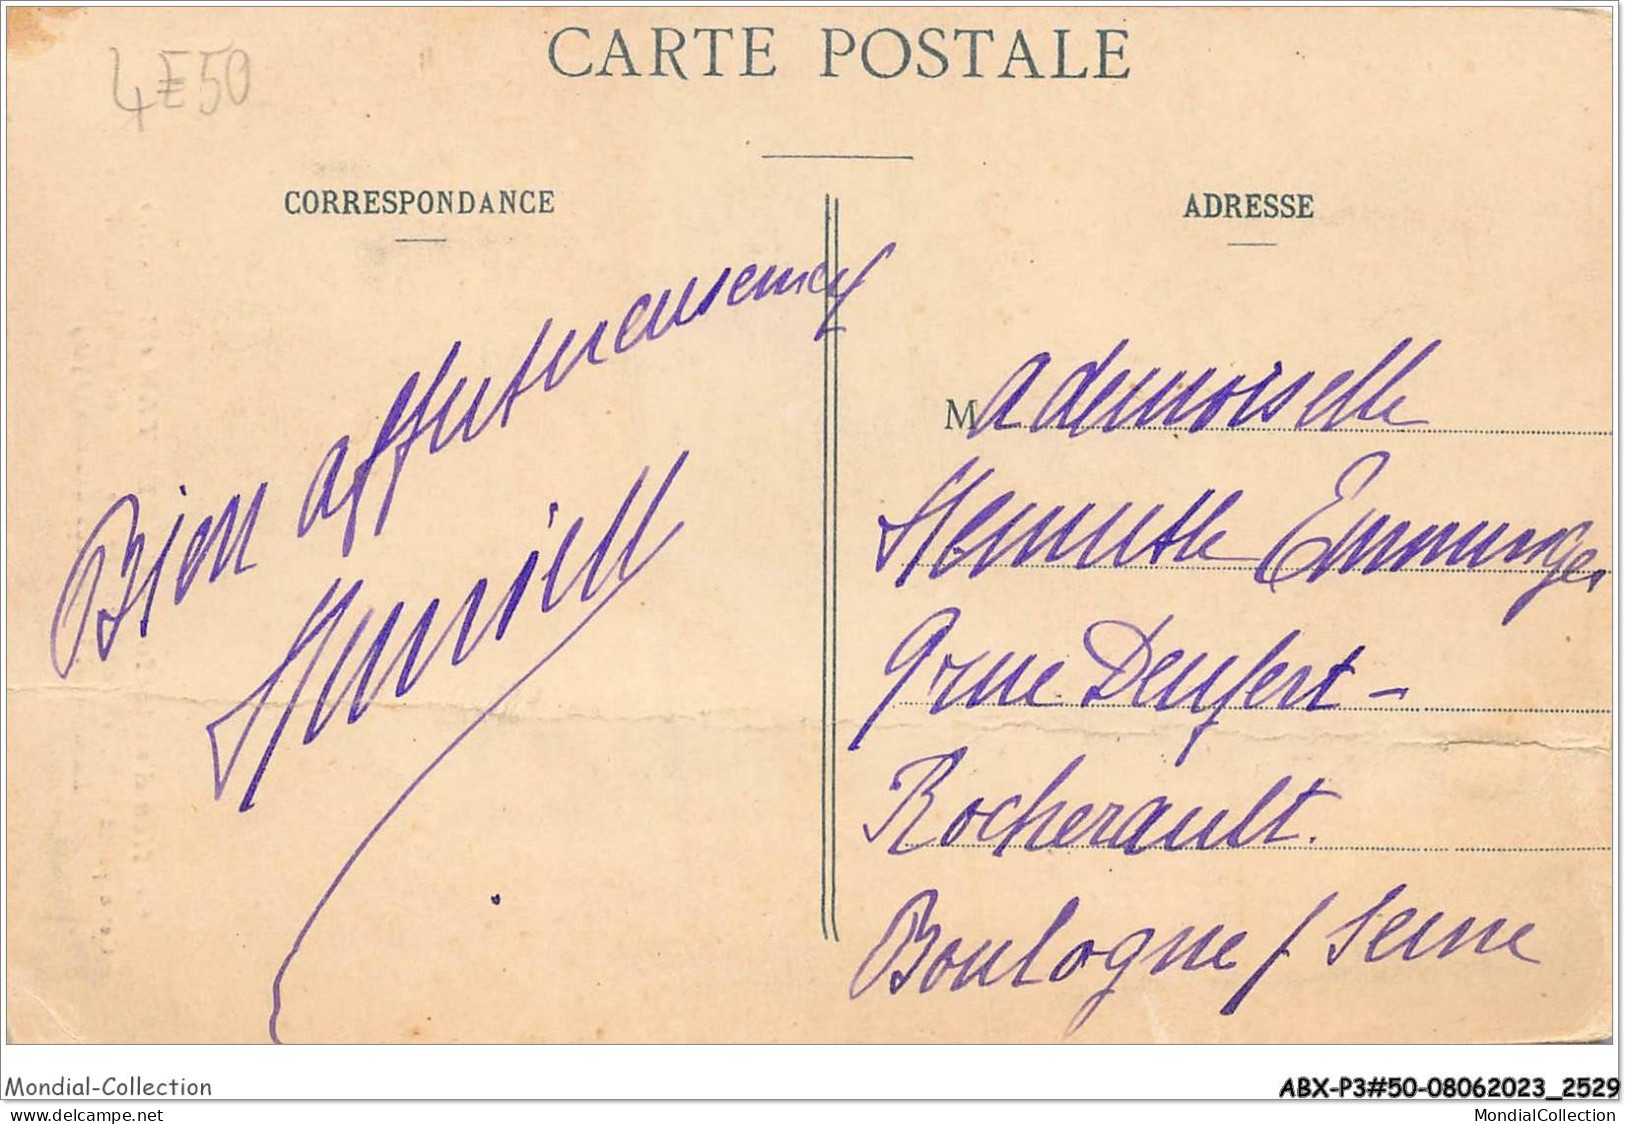 CARTE POSTALE
4€50
CORRESPONDANCE
ADRESSE
Bien affectueusement
Mademoiselle
9 rue Denfert-
Rocherault.
Boulogne / Seine
Mondial-Collection
ABX-P3#50-08062023_2529
www.delcampe.net
MondialCollection